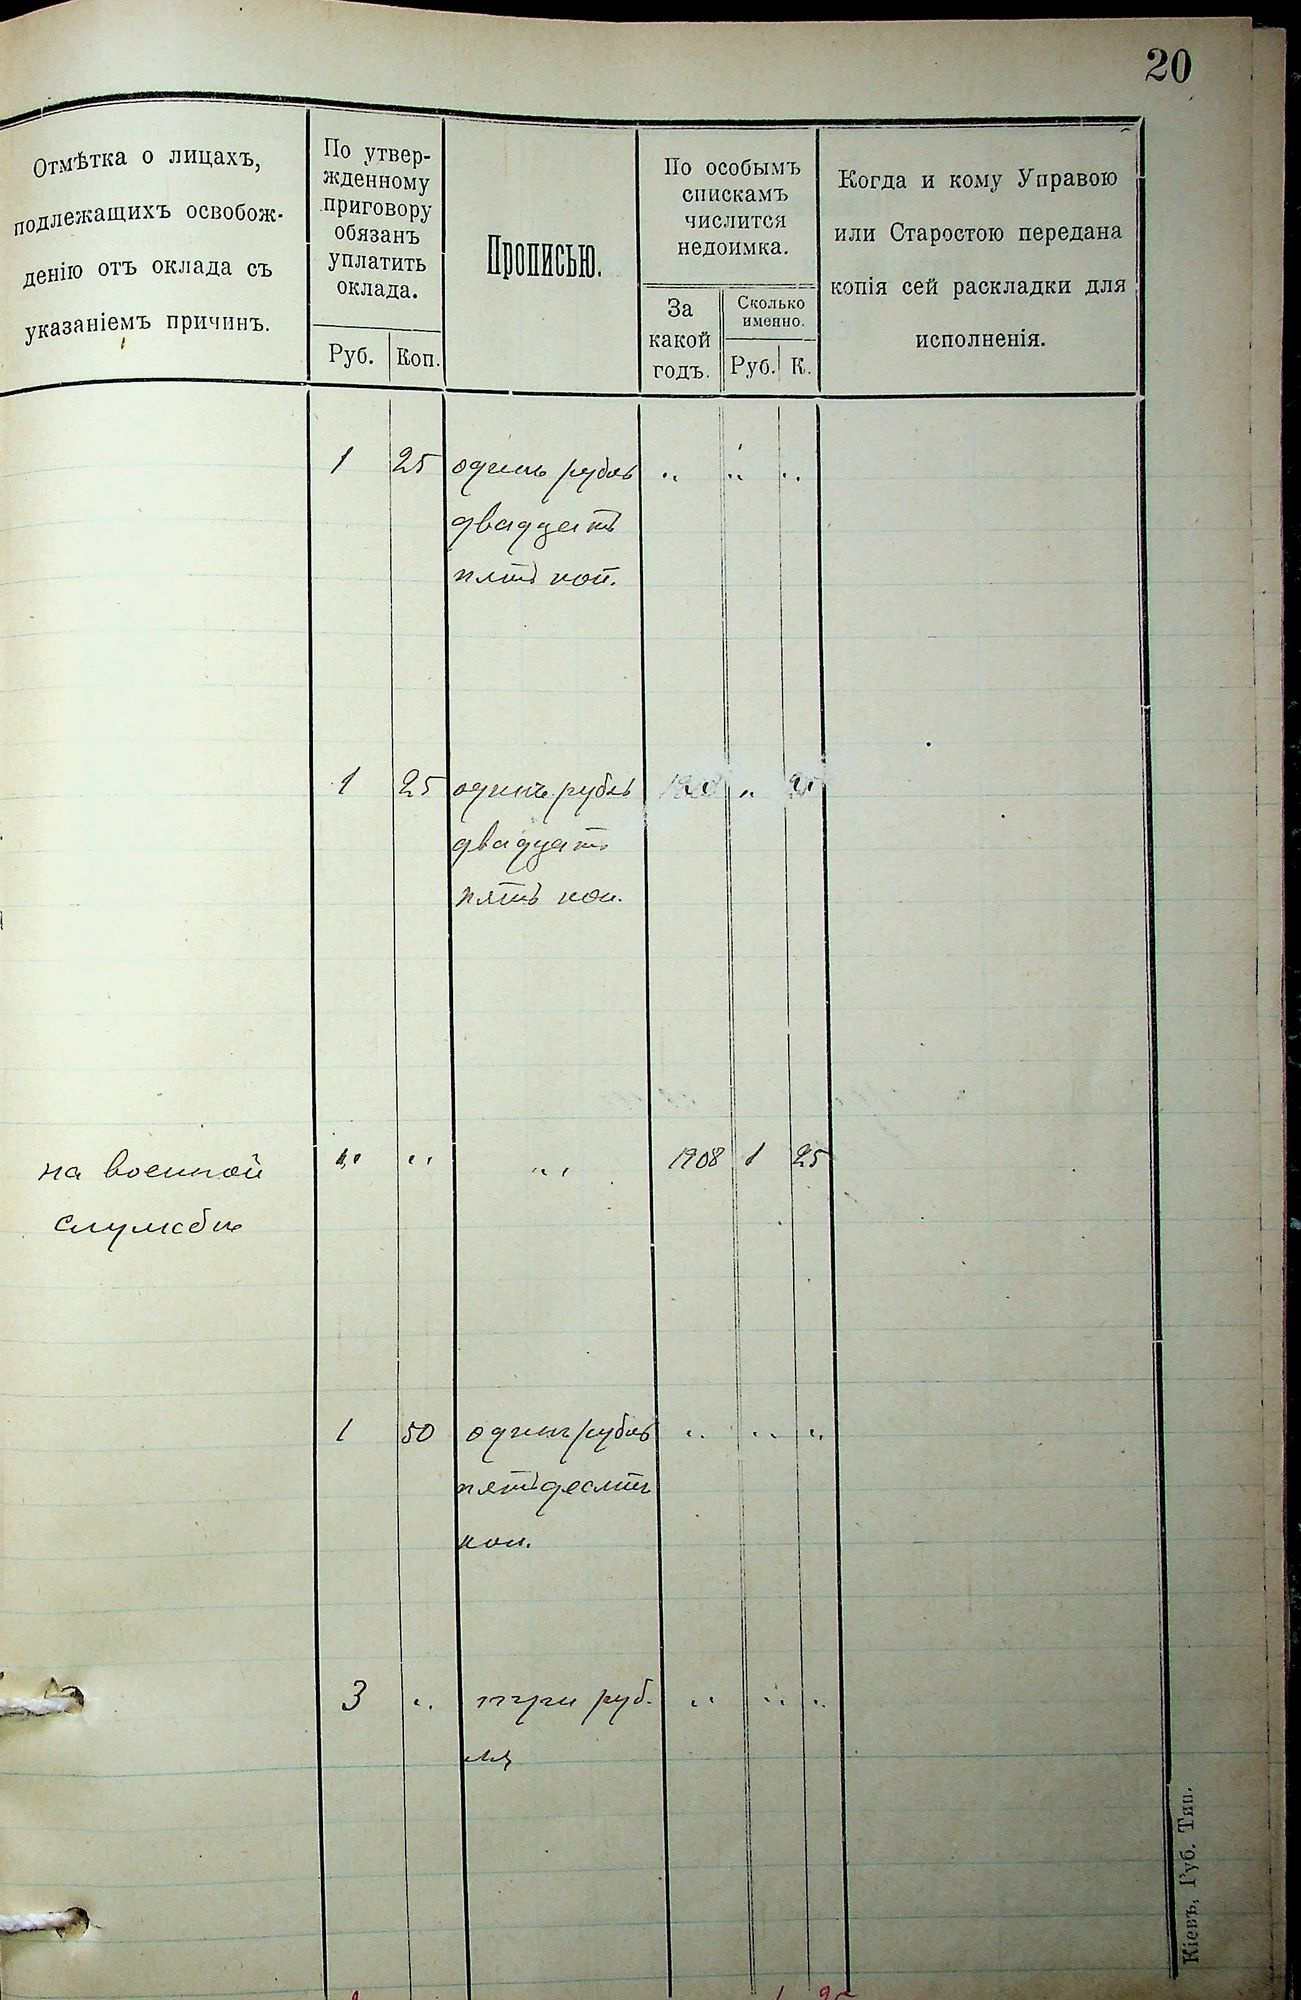 20
Отмѣтка о лицахъ,
подлежащихъ освобож-
денію отъ оклада съ
указаніемъ причинъ.
По утвер-
жденному
приговору
обязанъ
уплатить
оклада.
Руб. Коп.
Прописью.
По особымъ
спискамъ
числится
недоимка.
За
какой
годъ.
Сколько
именно.
Руб. К.
Когда и кому Управою
или Старостою передана
копія сей раскладки для
исполненія.
1 25 одинъ рубль „ „ „
двадцать
пять коп.
1 25 одинъ рубль „
двадцать
пять коп.
на военной „ „ „ 1908 1 25
службѣ
1 50 одинъ рубль „ „ „
пятьдесятъ
коп.
3 „ три руб- „ „ „
ля
Кіевъ, Губ. Тип.